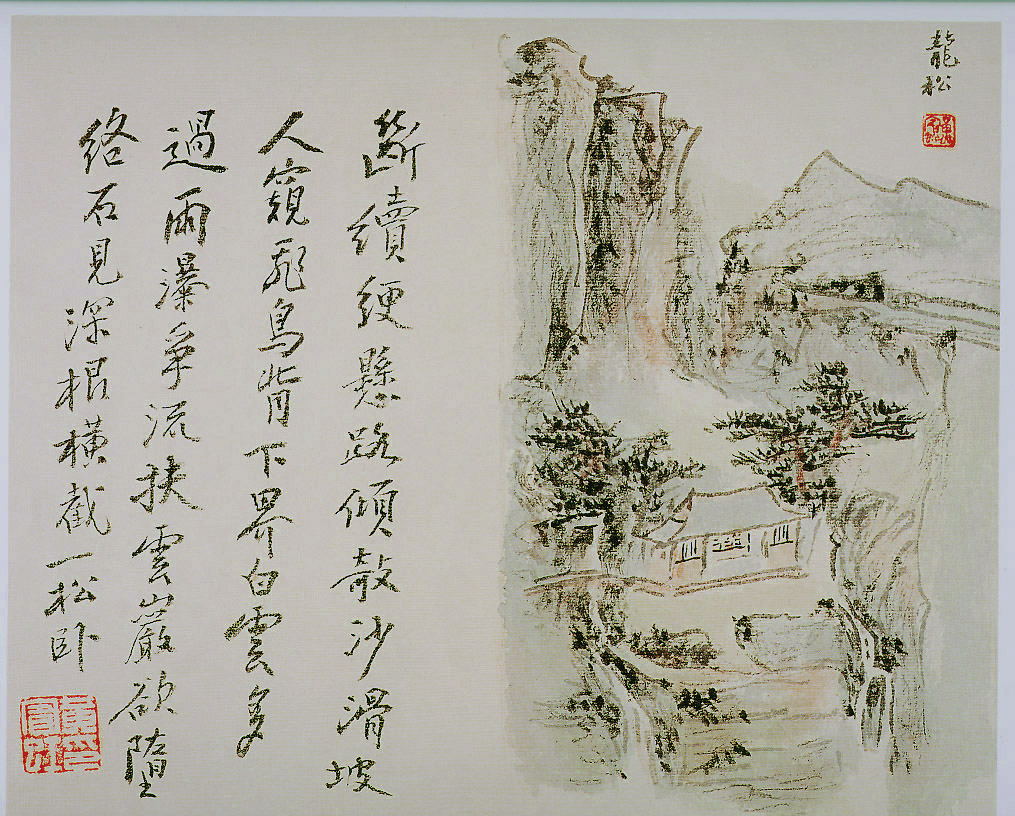 龍松
斷續綆懸路傾敧沙滑坡
人窺飛鳥背下界白雲多
過雨瀑爭流挾雲巖欲墮
絡石見深根橫截一松臥
黃賓虹印